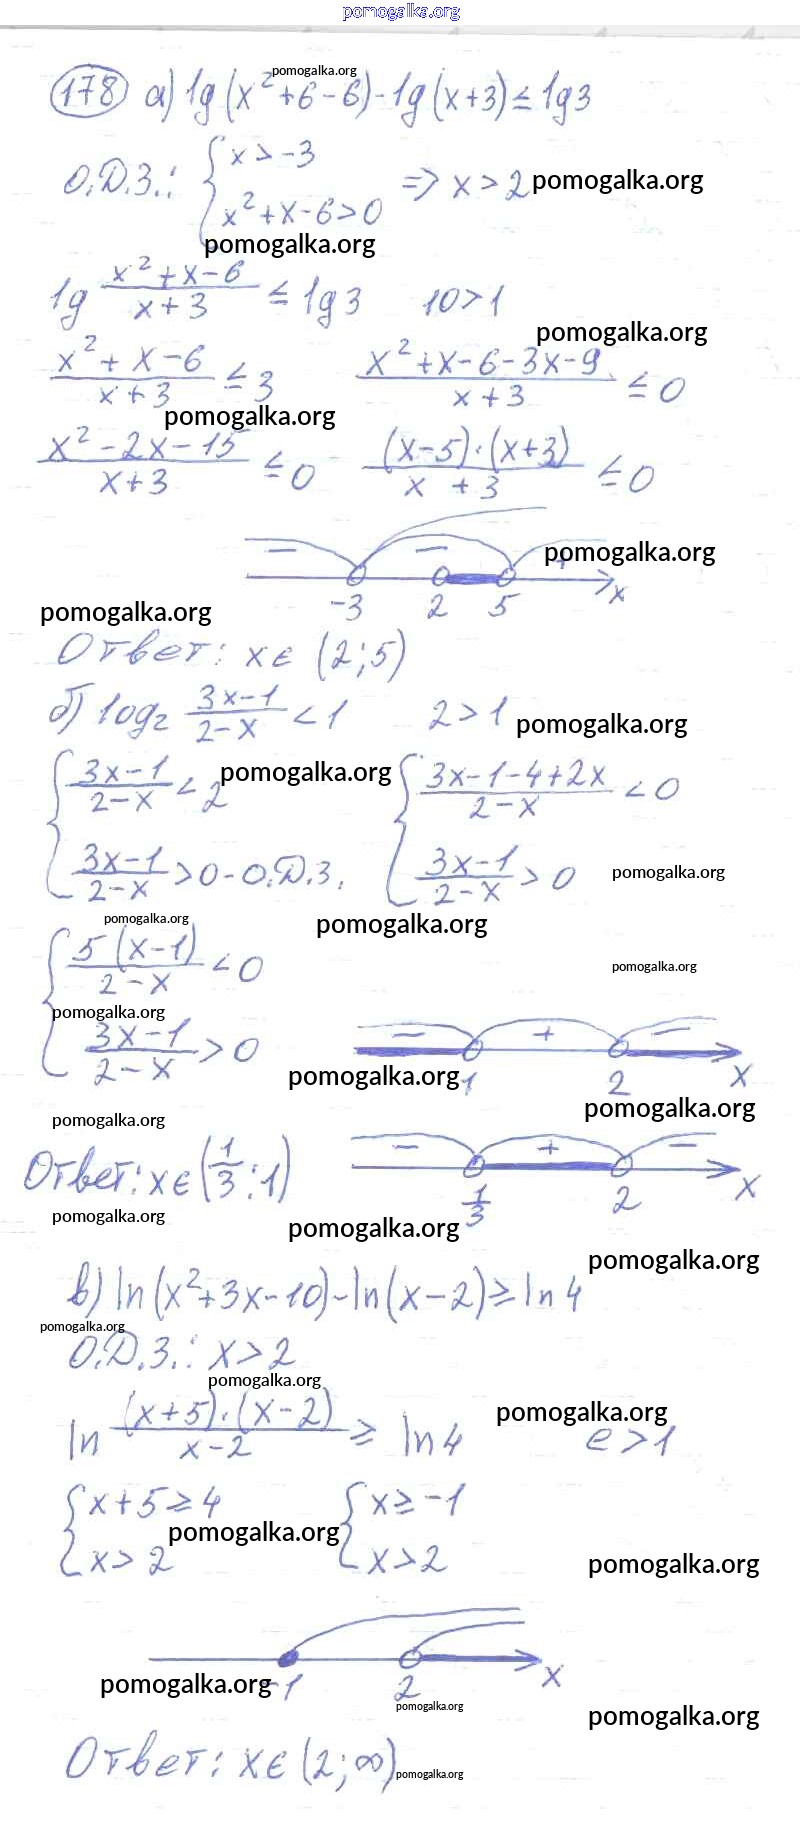 pomogalka.org
178 а) lg(x²+6-6)-lg(x+3)≤lg3
pomogalka.org
О.Д.З.: { x>-3
x²+x-6>0 => x>2 pomogalka.org
pomogalka.org
lg (x²+x-6)/(x+3) ≤ lg3 10>1
pomogalka.org
(x²+x-6)/(x+3) ≤ 3 (x²+x-6-3x-9)/(x+3) ≤ 0
pomogalka.org
(x²-2x-15)/(x+3) ≤ 0 ((x-5)·(x+3))/(x+3) ≤ 0
pomogalka.org
- - +
-3 2 5 x
pomogalka.org
Ответ: x∈(2;5)
б) log₂ (3x-1)/(2-x) < 1 2>1 pomogalka.org
{ (3x-1)/(2-x) < 2 pomogalka.org { (3x-1-4+2x)/(2-x) < 0
(3x-1)/(2-x) > 0 - О.Д.З. (3x-1)/(2-x) > 0 pomogalka.org
pomogalka.org pomogalka.org
{ 5(x-1)/(2-x) < 0 pomogalka.org
pomogalka.org
(3x-1)/(2-x) > 0 - + -
pomogalka.org 1 2 x
pomogalka.org pomogalka.org
Ответ: x∈(1/3;1) - + -
1/3 2 x
pomogalka.org pomogalka.org
pomogalka.org
в) ln(x²+3x-10)-ln(x-2)≥ln4
pomogalka.org
О.Д.З.: x>2
pomogalka.org
ln ((x+5)·(x-2))/(x-2) ≥ ln4 e>1
pomogalka.org
{ x+5≥4 { x≥-1
pomogalka.org
x>2 x>2 pomogalka.org
-1 2 x
pomogalka.org
pomogalka.org
pomogalka.org
Ответ: x∈(2;∞) pomogalka.org